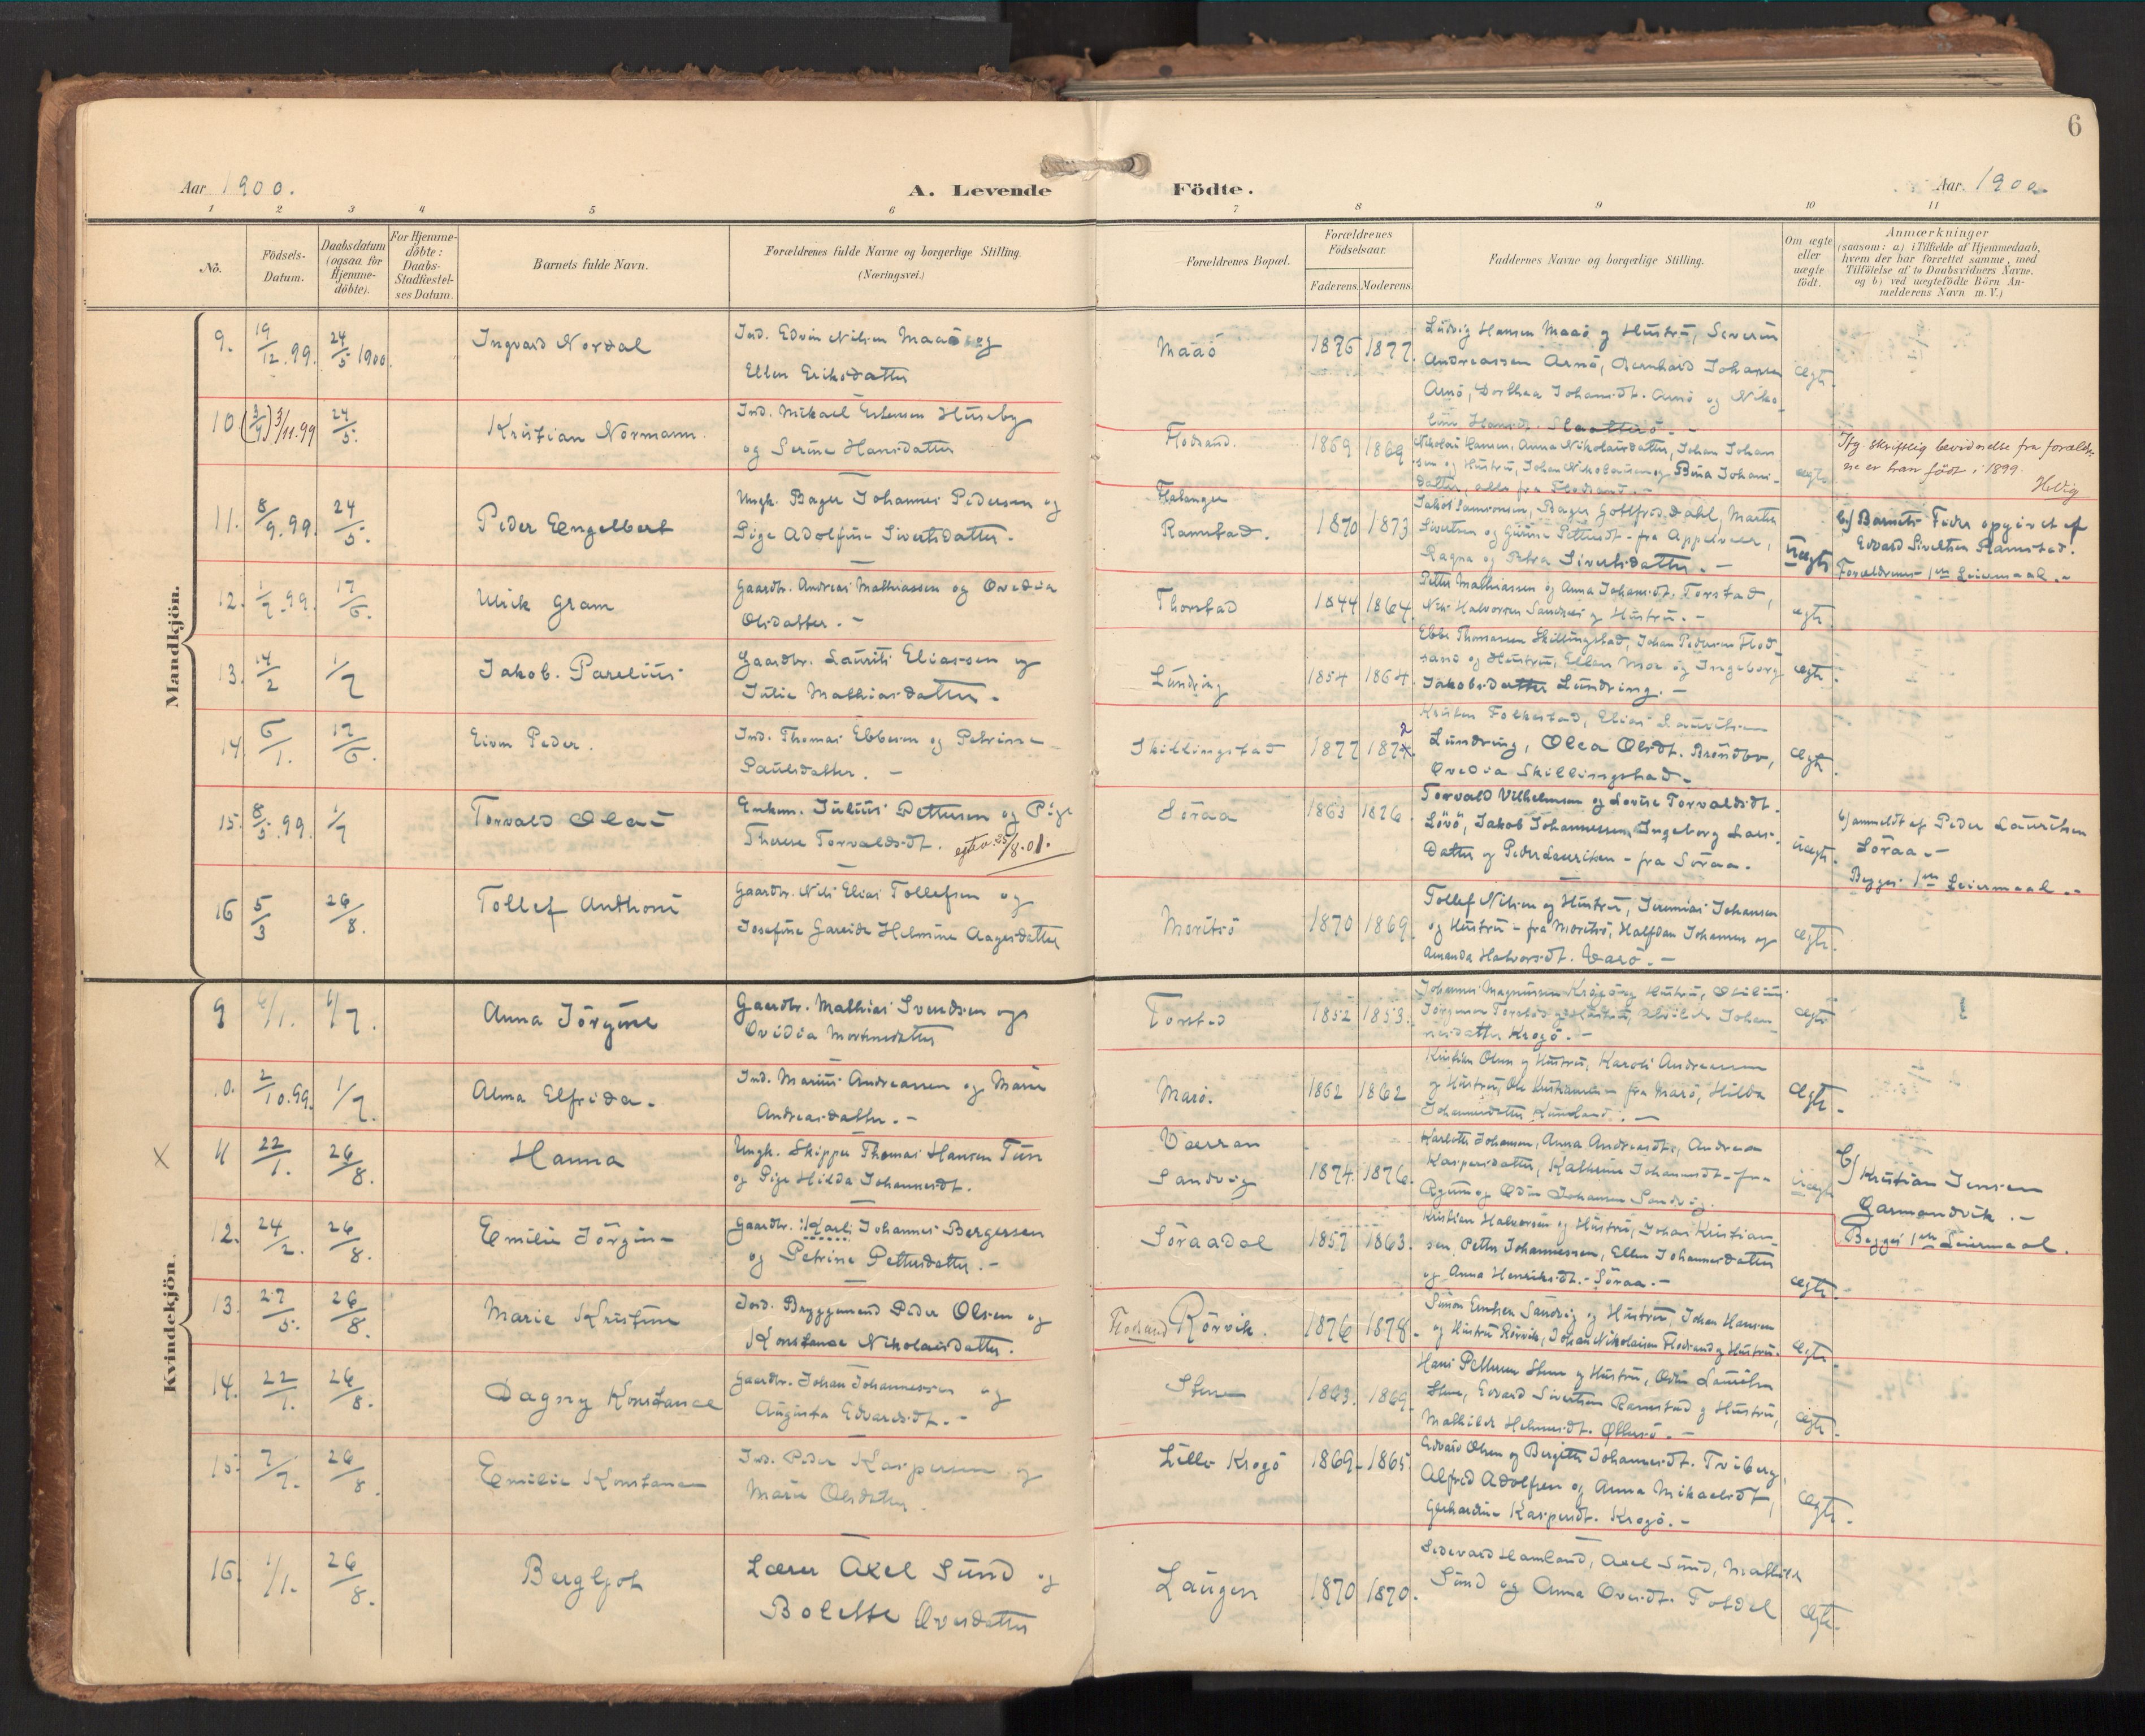 6
Aar 1900.
A. Levende Fødte.
Aar. 1900
1 2 3 4 5 6 7 8 9 10 11
No.
Fødsels-
Datum.
Daabsdatum
(ogsaa for
Hjemme-
døbte).
For Hjemme-
døbte:
Daabs-
Stadfæstel-
ses Datum.
Barnets fulde Navn.
Forældrenes fulde Navne og borgerlige Stilling.
(Næringsvei.)
Forældrenes Bopæl.
Forældrenes
Fødselsaar.
Faderens. Moderens.
Faddernes Navne og borgerlige Stilling.
Om ægte
eller
uægte
født.
Anmærkninger
(saasom: a) i Tilfælde af Hjemmedaab,
hvem der har forrettet samme, med
Tilføielse af to Daabsvidners Navne.
og b) ved uægtefødte Børn An-
melderens Navn m. V.)
Mandkjön.
9. 19/12.99. 24/5 1900. Ingvard Nordal
Ind. Edvin Nilsen Maaö og
Ellen Eriksdatter
Maaö 1876 1877.
Ludvig Hansen Maaö og Hustru, Severin
Andreassen Arnö, Bernhard Johansen
Arnö, Dorthea Johansdt. Arnö og Niko-
line Hansdt. Slaatterö. -
Ægte.
10 (3/9) 3/11.99 24/5. Kristian Normann.
Ind. Mikael Estensen Huseby
og Serine Hansdatter
Flosand. 1869 1869
Nikolai Hansen, Anna Nikolaisdatter, Johan Johan
sen og Hustru, Johan Nikolaisen og Bina Johans-
datter, alle fra Flosand. -
ægte
Iflg. skriftlig bevidnelse fra foræld-
ne er han født i 1899.
11. 8/9.99. 24/5. Peder Engelbert
Ungk. Bager Johannes Pedersen og
Pige Adolfine Sivertsdatter. -
Flatanger
Ramstad. 1870 1873
Jakob Samsonsen, Bager Gotlfred Dahl, Martin
Sivertsen og Gurine Pettersdt - fra Appelvær,
Ragna og Petra Sivertsdatter. -
Uægte
b) Barnets Fader opgivet af
Edvard Sivertsen Ramstad.
Forældrenes 1ste Leiermaal. -
12. 1/7.99. 17/6. Ulrik Gram
Gaardbr. Andreas Mathiassen og Ovedia
Olsdatter. -
Thorstad 1844 1864.
Petter Mathiassen og Anna Johansdt. Torstad,
Nils Halvorsen Sandnes og Hustru. -
ægte
13. 14/2 1/7 Jakob. Parelius
Gaardbr. Laurits Eliassen og
Julie Mathiasdatter. -
Lundring 1854 1864.
Ebbe Thomassen Skillingstad, Johan Pedersen Flot
sand og Hustru, Ellen Moe og Ingeborg
Jakobsdatter Lundring. -
Ægte.
14. 6/1. 17/6. Eivin Peder.
Ind. Thomas Ebbesen og Petrine
Paulsdatter. -
Skillingstad 1877 1872.
Kristen Folkestad, Elias Lauritsen
Lundring, Olea Olsdt. Bröndbo,
Ovedia Skillingstad. -
Ægte.
15. 8/5.99. 1/7 Torvald Olai
Enkem. Julius Pettersen og Pige
Therese Torvaldsdt. egtev. 25/8.01.
Söraa 1863 1876.
Torvald Vilhelmsen og Lovise Torvaldsdt.
Lövö, Jakob Johannessen, Ingeborg Lars-
datter og Peder Lauritsen - fra Söraa.
Uægte.
b) anmeldt af Peder Lauritsen
Söraa. -
Begges 1ste Leiermaal. -
16 5/3 26/8. Tollef Anthoni
Gaardbr. Nils Elias Tollefsen og
Josefine Gareide Helmine Aagesdatter
Moritsö 1870 1869.
Tollef Nilsen og Hustru, Jeremias Johansen
og Hustru - fra Moritsö, Halfdan Johansen og
Amanda Halvorsdt. Varö. -
Ægte.
Kvindekjön.
9 6/1. 1/7. Anna Jörgine
Gaardbr. Mathias Svendsen og
Ovidia Mortensdatter
Torstad 1852 1853.
Johannes Magnussen Krogö og Hustru,
Jörgensen Torstad og Hustru, Johan-
nesdatter Krogö. -
Ægte
10. 2/10.99. 1/7. Alma Elfrida. -
Ind. Marius Andreassen og Marie
Andreasdatter. -
Marö. 1862 1862
Kristian Olsen og Hustru, Karoli Andreassen
og Hustru, Ole Kristiansen fra Marö, Hilda
Johannesdatter
Ægte.
X 11 22/1. 26/8. Hanna
Ungk. Skipper Thomas Hansen Tun
og Pige Hilda Johannesdt.
Værran
Sandvig 1874. 1876.
Karlotte Johansen, Anna Andreasdt., Andrea
Kaspersdatter, Kathrine Johannesdt - fra
og Odin Johansen Sandvig.
Uægte
b) Kristian Jensen
Garmandvik. -
Begges 1ste Leiermaal.
12. 24/2. 26/8. Emilie Jörgine
Gaardbr. Karl Johannes Bergersen
og Petrine Pettersdatter. -
Söraadal 1857 1863.
Kristian Halvorsen og Hustru, Johan Kristian-
sen, Petter Johannessen, Ellen Johannesdatter
og Anna Henriksdt. - Söraa. -
Ægte.
13. 27/5. 26/8. Marie Kristine
Ind. Byggmand Peder Olsen og
Konstance Nikolaisdatter.
Flosand Rörvik. 1876 1878.
Simon Sandvig og Hustru, Johan Hansen
og Hustru Rörvik, Johan Nikolaisen Flosand og Hustru.
Ægte.
14. 22/1. 26/8. Dagny Konstance
Gaardbr. Johan Johannessen og
Augusta Edvardsdt. -
Stene 1863. 1869.
Hans Pettersen Stene og Hustru, Odin Lauritsen
Stene, Edvard Sivertsen Ramstad og Hustru,
Mathilde Helmersdt.
Ægte.
15. 7/7. 26/8. Emilie Konstance
Ind. Peder Kaspersen og
Marie Olsdatter.
Lille Krogö 1869. 1865
Edvard Olsen og Bergitte Johannesdt. Tviberg,
Alfred Adolfsen og Anna Mikaelsdt,
Gerhardine Kaspersdt. Krogö. -
Ægte.
16. 1/1. 26/8. Bergljot
Lærer Axel Sund og
Bolette Ovesdatter
Laugen 1870 1870.
Sedevard Hamland, Axel Sund, Mathilde
Sund og Anna Ovesdt. Fosdal
Ægte.